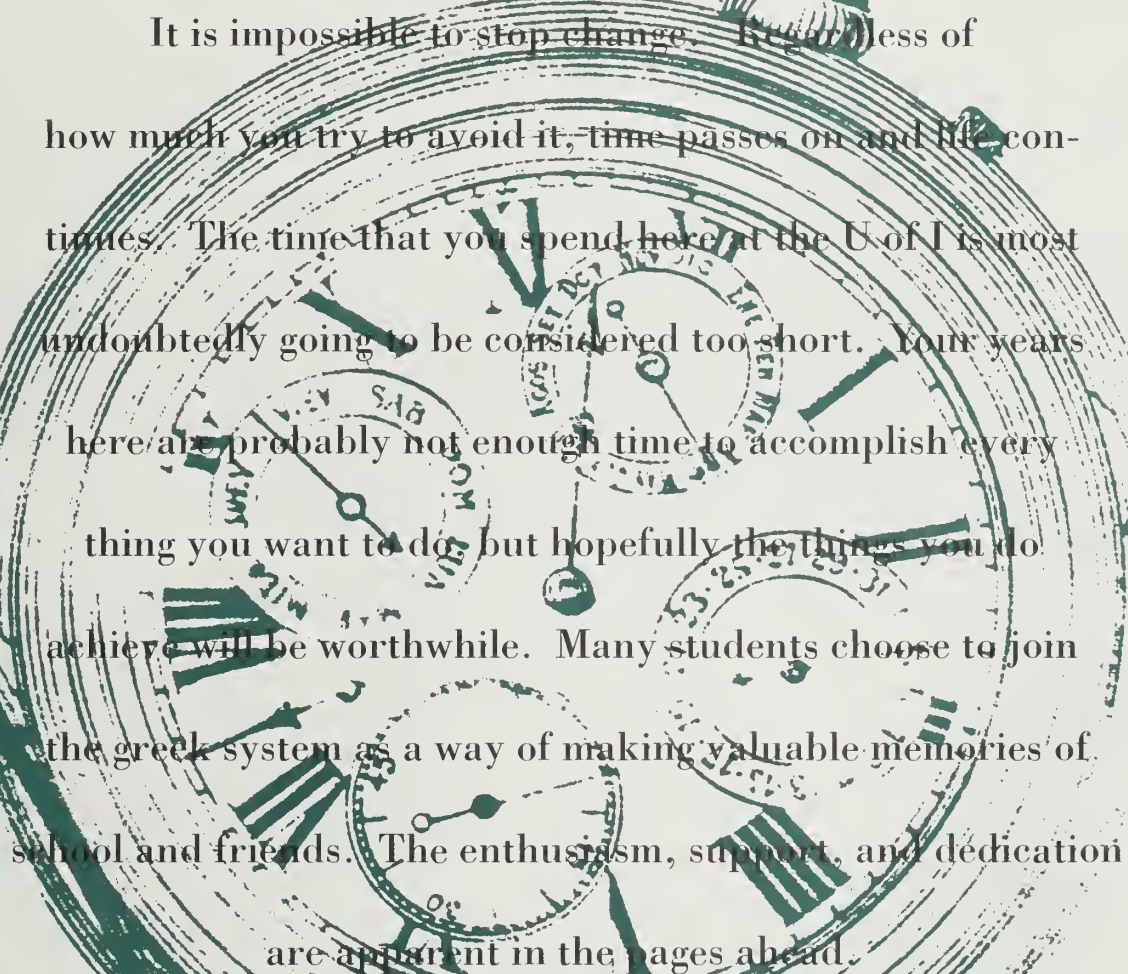 It is impossible to stop change. Regardless of
how much you try to avoid it, time passes on and life con-
tinues. The time that you spend here at the U of I is most
undoubtedly going to be considered too short. Your years
here are probably not enough time to accomplish every
thing you want to do, but hopefully the things you do
achieve will be worthwhile. Many students choose to join
the greek system as a way of making valuable memories of
school and friends. The enthusiasm, support, and dedication
are apparent in the pages ahead.
SAB
DOM
LUN
53·25·27·29·31
45
30